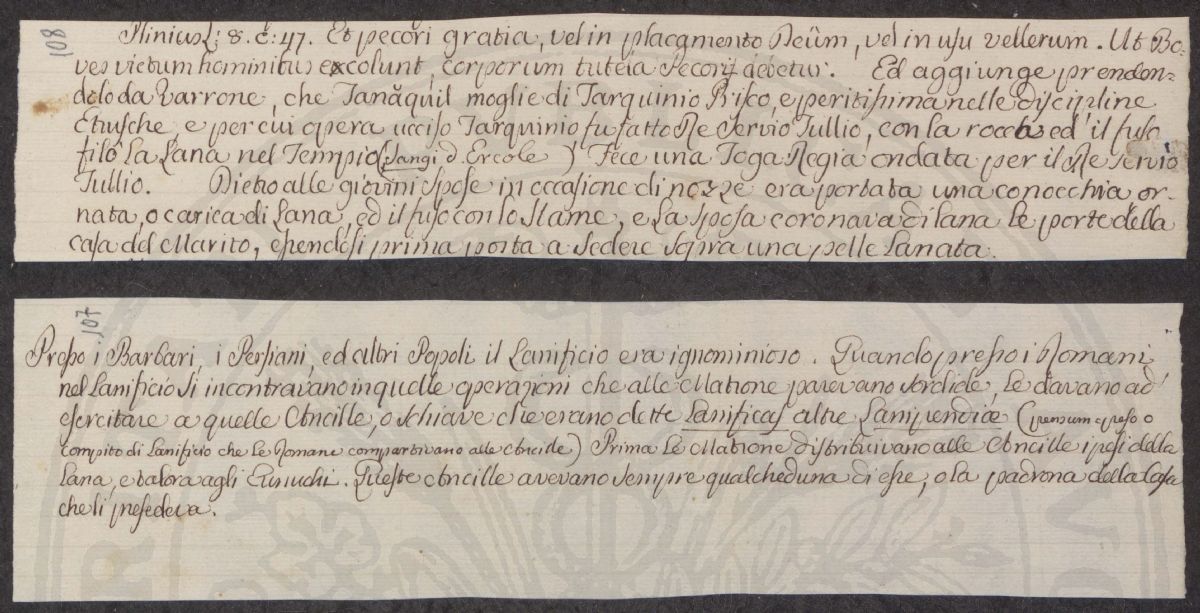 108
Plinius L: 8. c: 47. Et pecori gratia, vel in placamento Deûm, vel in usu vellerum. Ut Bo-
ves victum hominibus excolunt, corporum tutela Pecorij debetur. Ed aggiunge prenden=
dolo da Varrone, che Tanăquil moglie di Tarquinio Prisco, e peritissima nelle discipline
Etrusche, e per cui opera ucciso Tarquinio fu fatto Re Servio Tullio, con la rocca ed il fuso
filò La Lana nel Tempio (Sangi d. Ercole) Fece una Toga Regia ondata per il Re Servio
Tullio. Dietro alle giovini spose in occasione di nozze era portata una conocchia or-
nata, o carica di Lana, ed il fuso con lo Stame, e La Sposa coronava di lana Le porte della
casa del Marito, essendosi prima posta a Sedere sopra una pelle Lanata.
107
Presso i Barbari, i Persiani, ed altri Popoli il Lanificio era ignominioso. Quando presso i Romani
nel Lanificio si incontravano in quelle operazioni che alle Matrone parevano sordide, Le davano ad
esercitare a quelle Ancille, o schiave che erano dette Lanificas altre Lanipendiæ (pensum o peso o
compito di Lanificio che Le Romane compartivano alle Ancille) Prima Le Matrone distribuivano alle Ancille i pesi della
Lana, e talora agli Eunuchi. Queste Ancille avevano sempre qualcheduna di esse, o la padrona della Casa
che li presedeva.